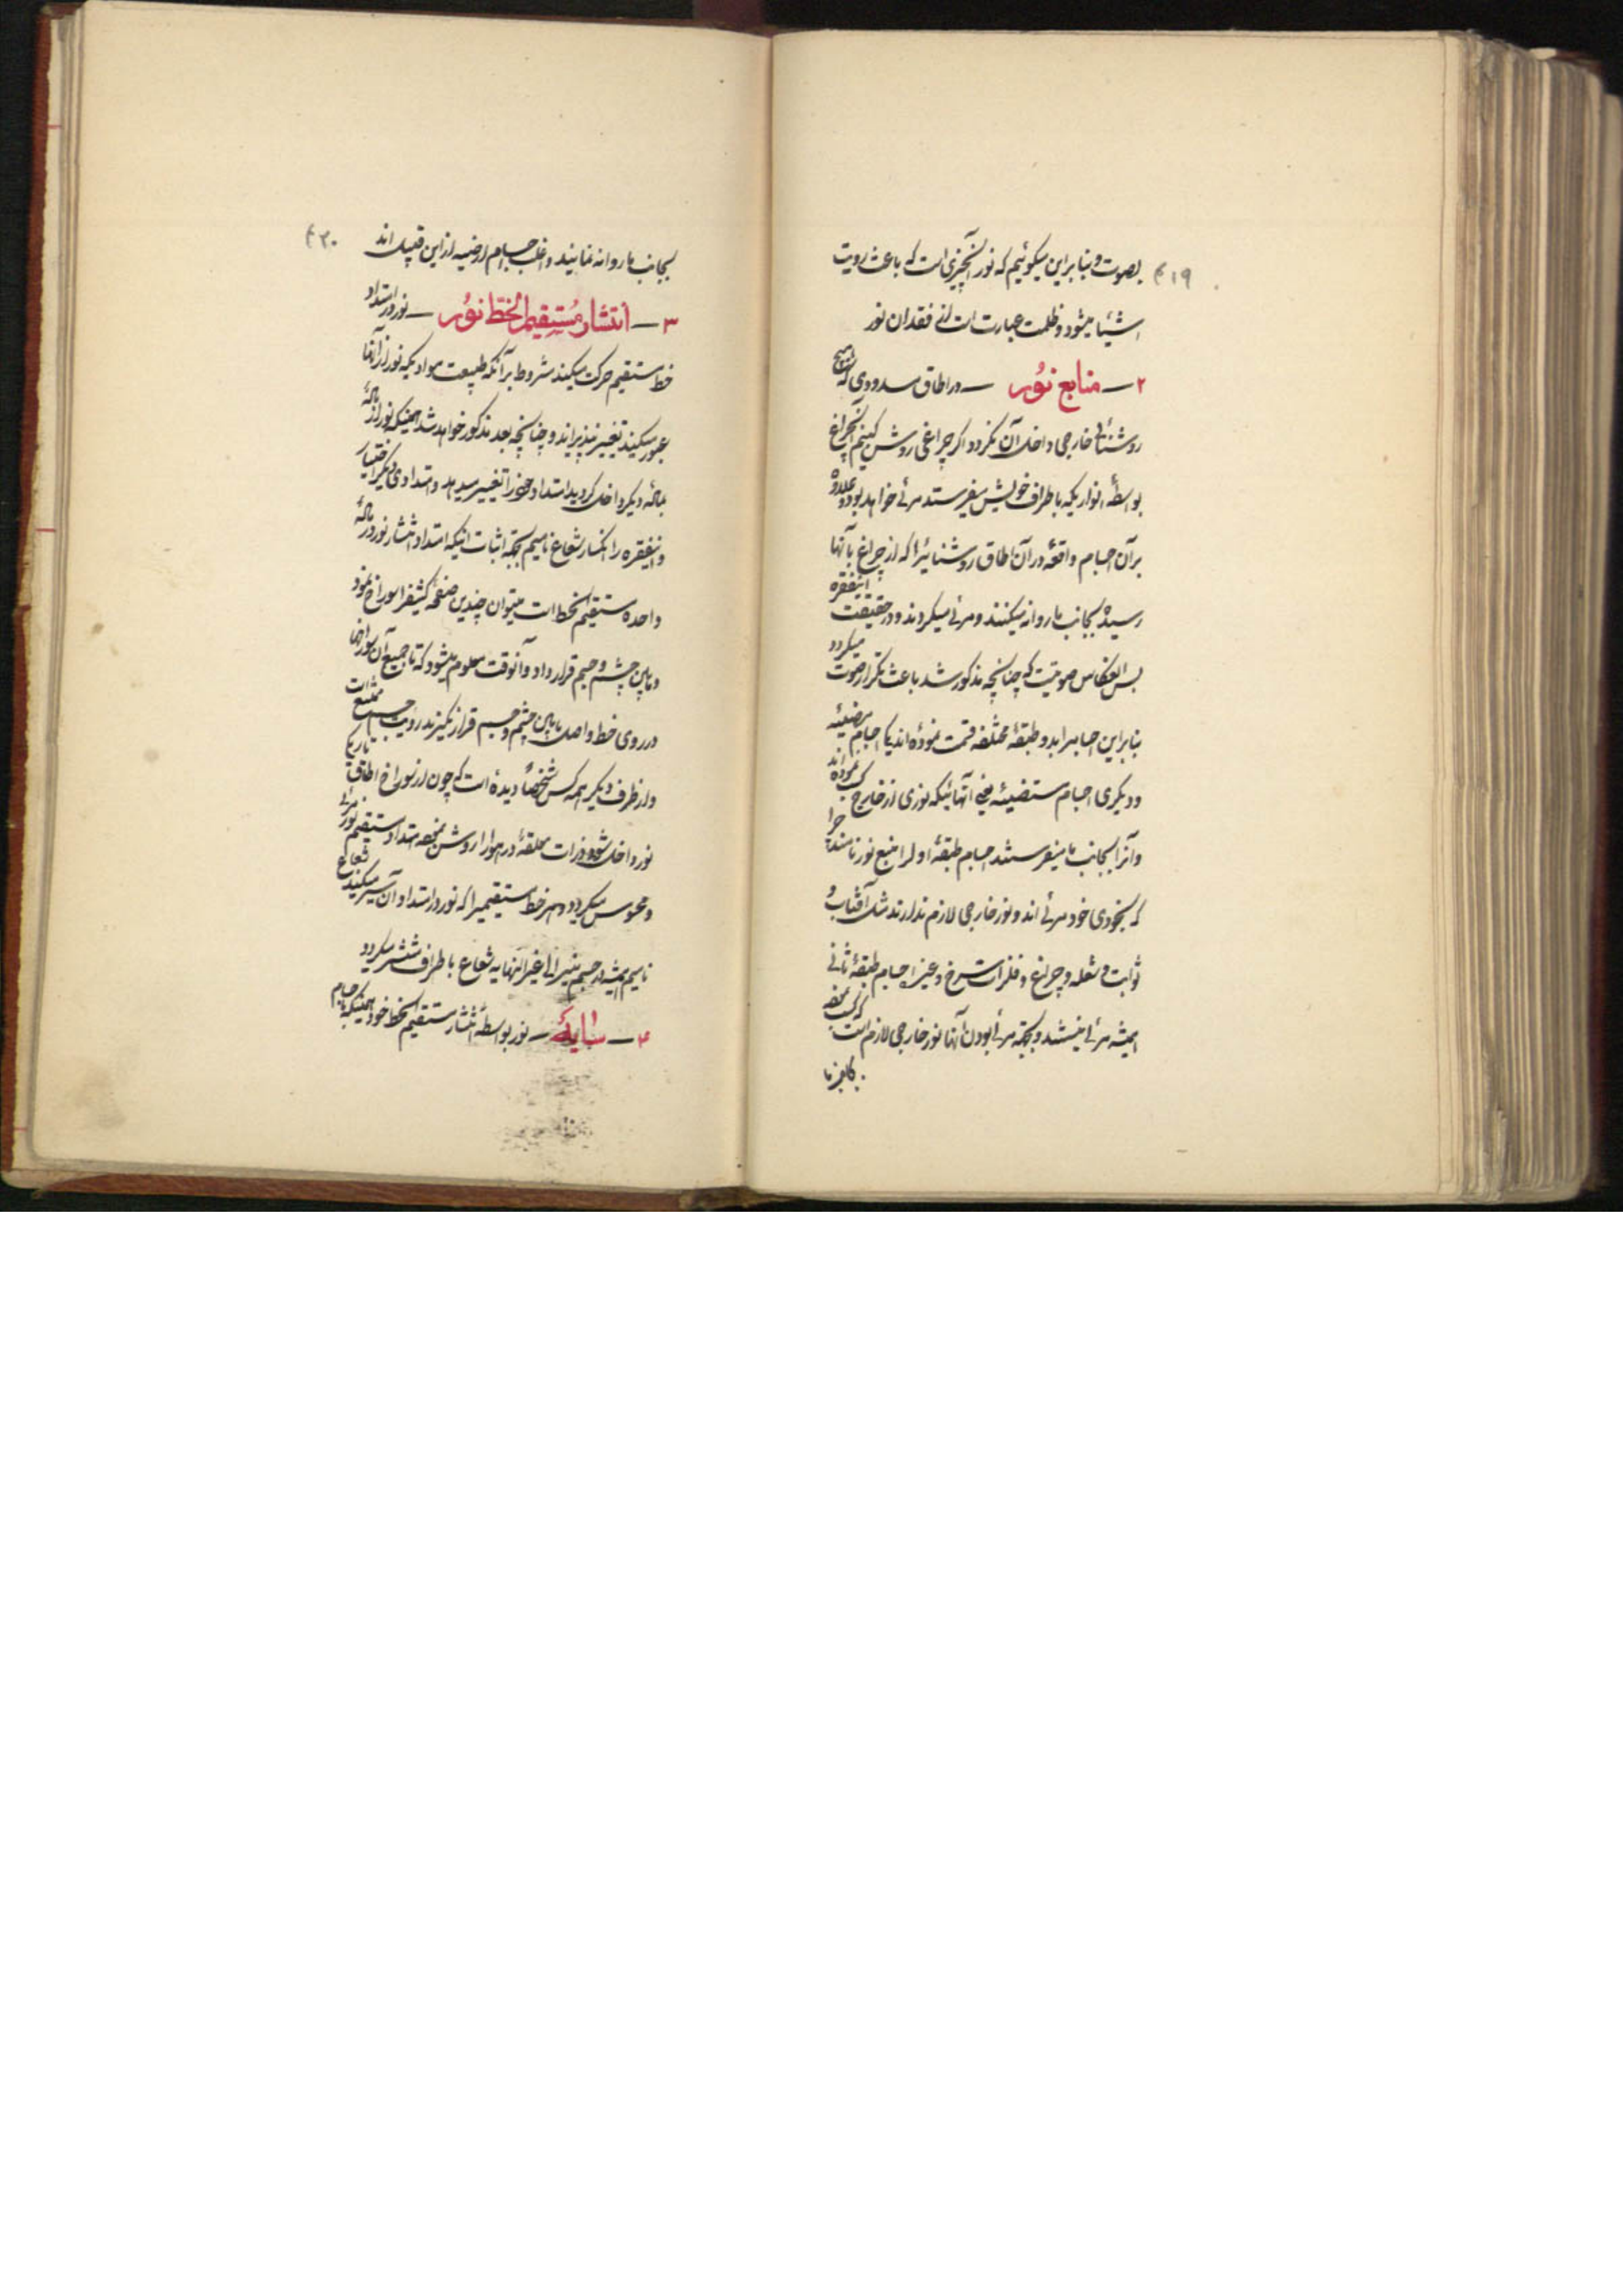 ۴۱۹
بصوت و بنابراین میگوئیم که نور آنچیزی است که باعث رویت
اشیا میشود و ظلمت عبارت است از فقدان نور
۲ — منابع نور — در اطاق مسدودی که هیچ
روشنائی خارجی داخل آن نگردد اگر چراغی روشن کنیم آنچراغ
بواسطهٔ انواریکه باطراف خویش میفرستد مرئی خواهد بود و علاوه
برآن اجسام واقعهٔ در آن اطاق روشنائیرا که از چراغ بآنها
رسیده بجانب ما روانه میکنند و مرئی میگردند و در حقیقت اینفقره
بس انعکاس صوتیست که چنانچه مذکور شد باعث تکرار صوت میگردد
بنابراین اجسام را بدو طبقهٔ مختلفه قسمت نموده‌اند یکی اجسام مضیئه
و دیگری اجسام مستضیئه یعنی آنهائیکه نوری از خارج کسب نموده‌اند
و آنرا بجانب ما میفرستند اجسام طبقهٔ اولرا منبع نور نامند چرا
که بخودی خود مرئی‌اند و نور خارجی لازم ندارند مثل آفتاب و
ثوابت و شعله و چراغ و فلزات سرخ و غیره اجسام طبقهٔ ثانی
همیشه مرئی نیستند و بجهة مرئی بودن آنها نور خارجی لازم است که کسب نموده
بجانب ما
۴۲۰
بجانب ما روانه نمایند و اغلب اجسام ارضیه از این قبیل‌اند
۳ — انتشار مستقیم الخط نور — نور در امتداد
خط مستقیم حرکت میکند مشروط بر آنکه طبیعت موادیکه نور از آنها
عبور میکند تغییر نپذیراند و چنانچه بعد مذکور خواهد شد همینکه نور از مادهٔ
بمادهٔ دیگر داخل گردید امتداد خود را تغییر میدهد و امتدادی دیگر اختیار
و اینفقره را انکسار شعاع نامیم بجهة اثبات اینکه امتداد انتشار نور در مادهٔ
واحده مستقیم الخط است میتوان چندین صفحهٔ کثیفرا سوراخ نمود
و مابین چشم و جسم قرار داد و آنوقت معلوم میشود که تا جمیع آن سوراخها
در روی خط واصل مابین چشم و جسم قرار نگیرند رویت جسم ممتنع است
و از طرف دیگر همه کس شخصاً دیده است که چون از سوراخ اطاق تاریکی
نور داخل شود ذرات معلقهٔ در هوا را روشن نموده امتداد مستقیم نور مرئی
و محسوس میگردد و هر خط مستقیمیرا که نور در امتداد آن سیر میکند شعاع
نامیم همیشه از جسم منیر الی غیر النهایه شعاع باطراف منتشر میگردد
۴ — سایه — نور بواسطهٔ انتشار مستقیم الخط خود همینکه باجسام